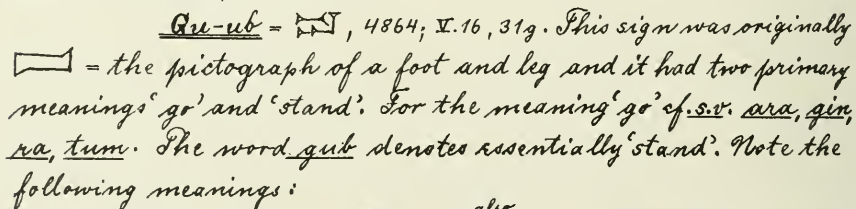 Gu-ub = , 4864; V. 16, 31g. This sign was originally
= the pictograph of a foot and leg and it had two primary
meanings 'go' and 'stand'. For the meaning 'go' cf. s.v. ara, gin,
ra, tum. The word gub denotes essentially 'stand'. Note the
following meanings:
also